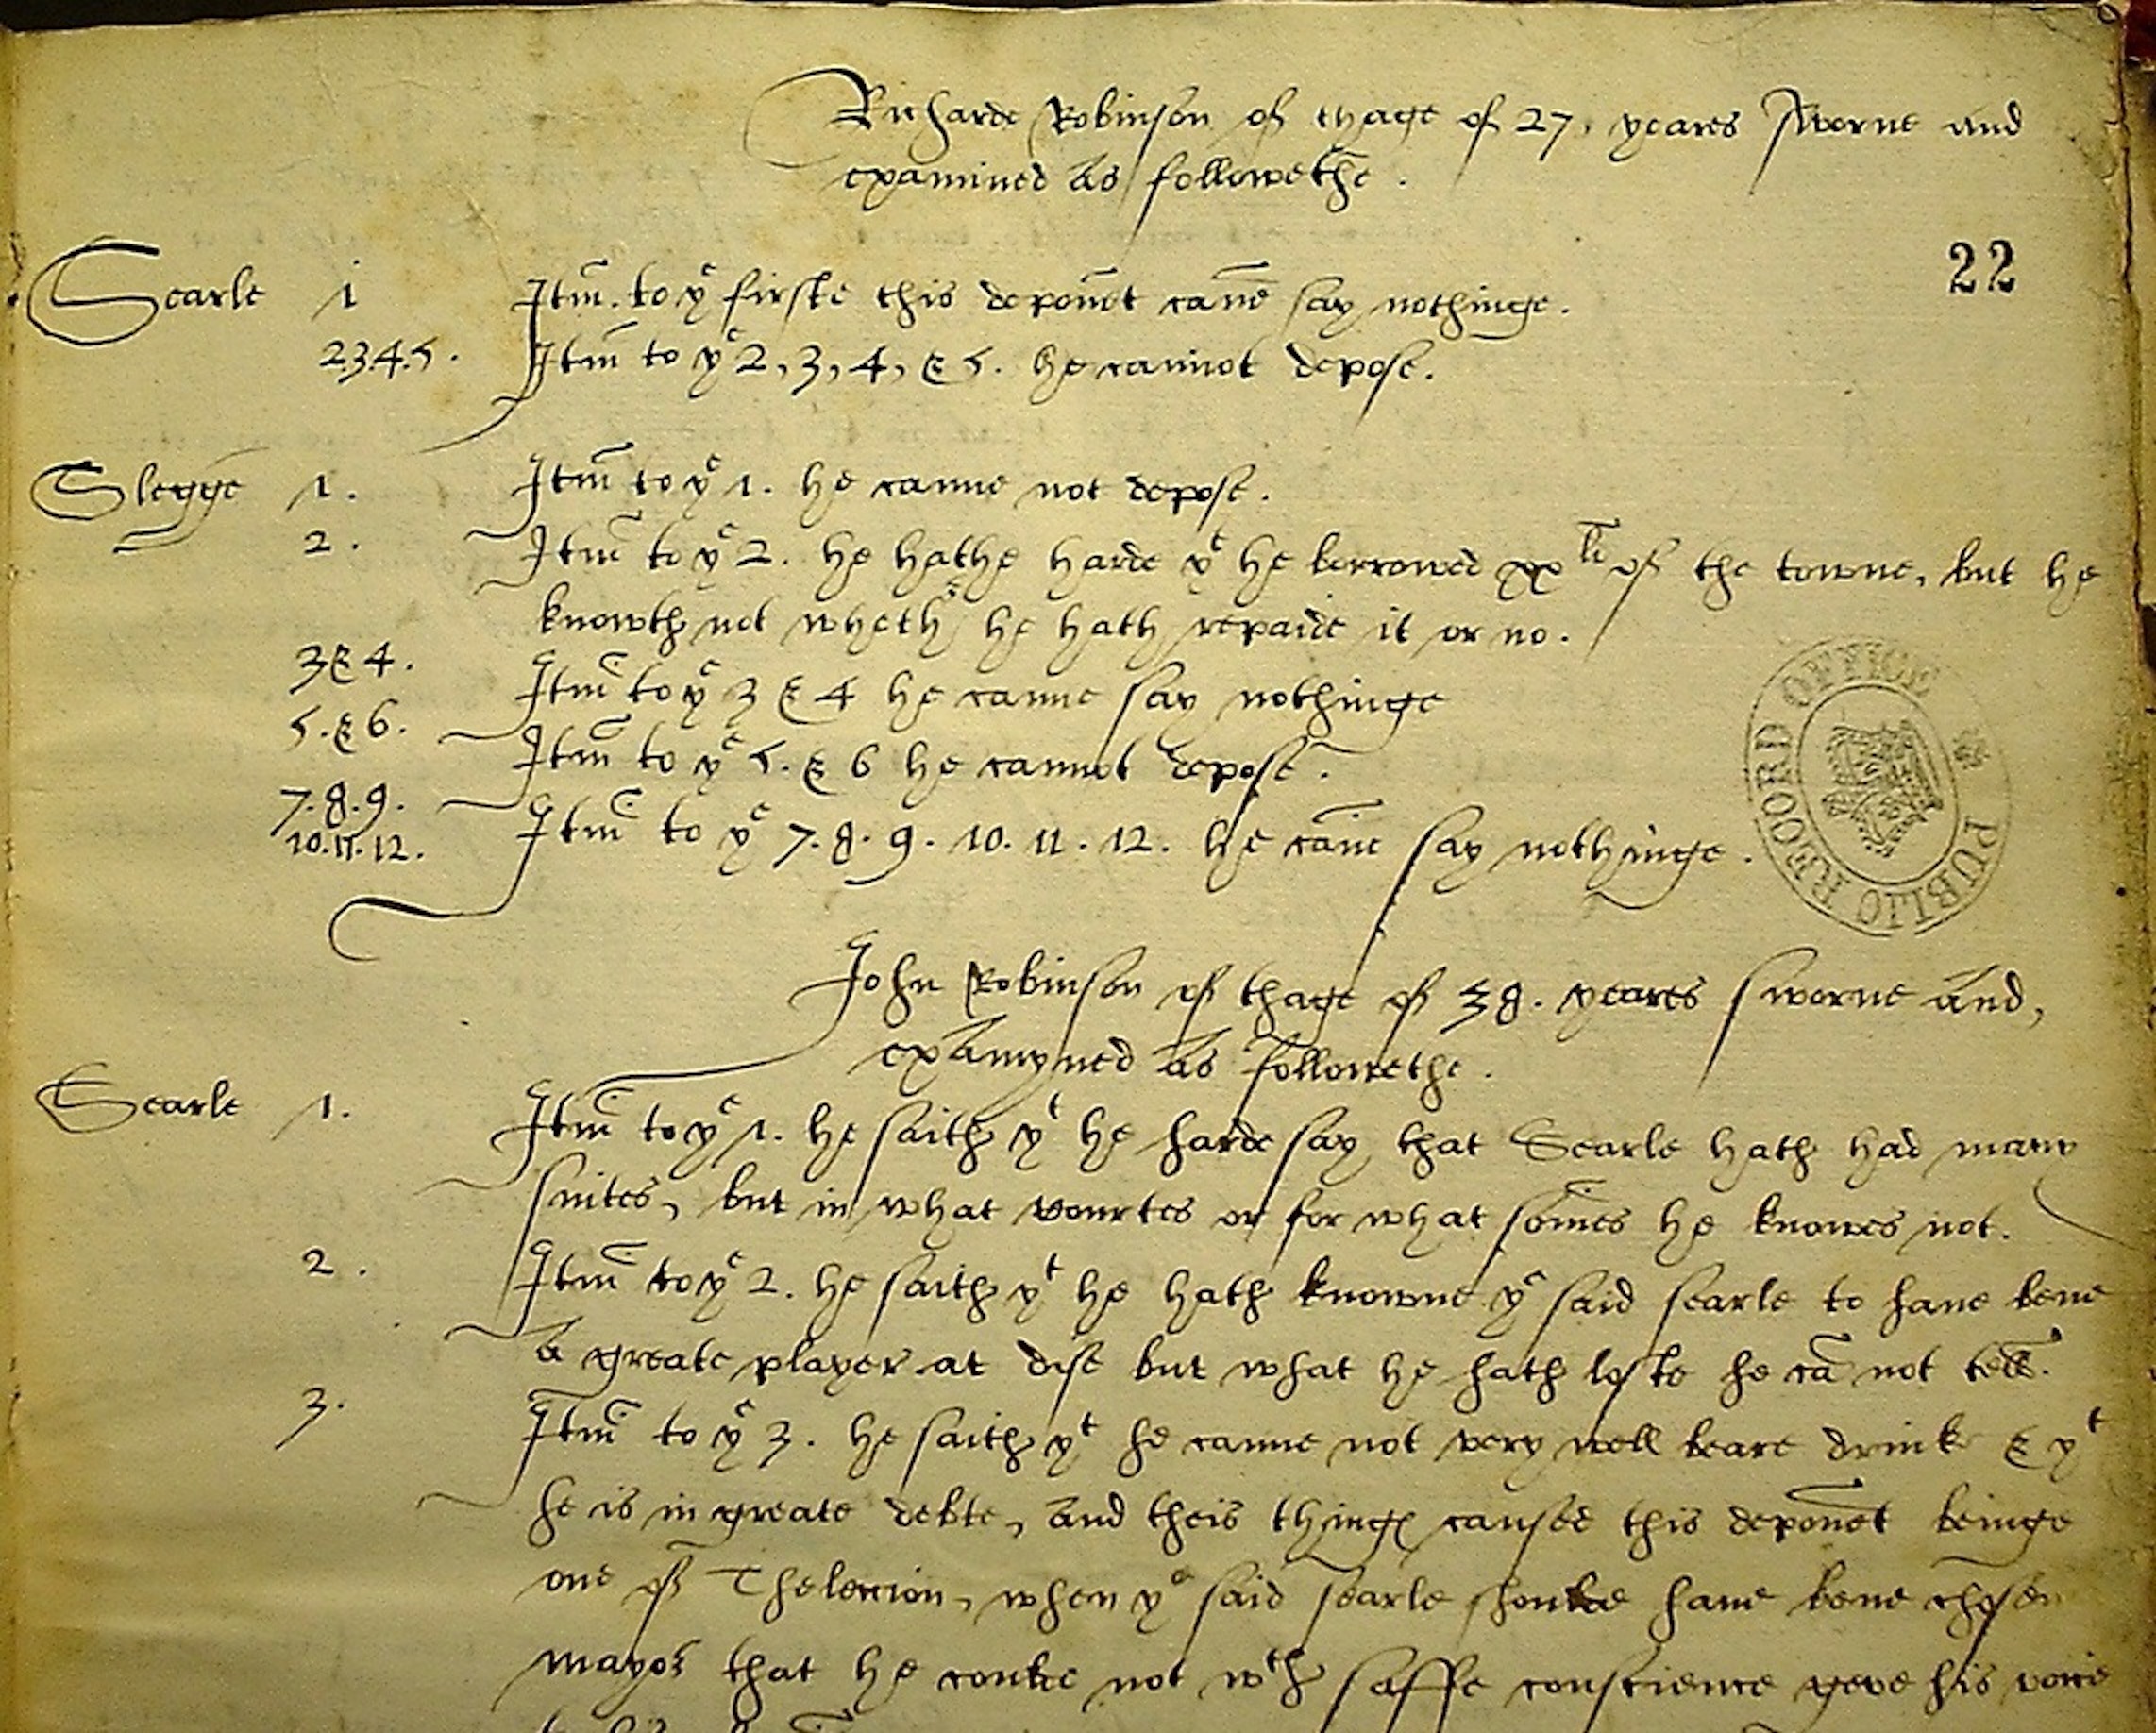 Richarde Robinson of thage of 27, yeares sworne and
examined as followethe.
22
Searle 1 Itm̄. to yͤ firste this depon̄et can̄e say nothinge.
2.3.4.5. Itm̄ to yͤ 2, 3, 4, & 5. he cannot depose.
Slegge 1. Itm̄ to yͤ 1. he canne not depose.
2. Itm̄ to yͤ 2. he hathe harde yͭ he borrowed xxˡⁱ of the towne, but he
knowth not wheth^r he hath repaide it or no.
3 & 4. Itm̄ to yͤ 3 & 4 he canne say nothinge
5. & 6. Itm̄ to yͤ 5. & 6 he cannot depose.
7. 8. 9. 10. 11. 12. Itm̄ to yͤ 7. 8. 9. 10. 11. 12. he can̄e say nothinge.
PUBLIC RECORD OFFICE
John Robinson of thage of 38. yeares sworne and,
examyned as followethe.
Searle 1. Itm̄ to yͤ 1. he saith yͭ he harde say that Searle hath had many
suites, but in what courtes or for what som̄es he knowes not.
2. Itm̄ to yͤ 2. he saith yͭ he hath knowne yͤ said searle to haue bene
a greate player at dise but what he hath loste he cā not tell.
3. Itm̄ to yͤ 3. he saith yͭ he canne not very well beare drinke & yͭ
he is in greate debte, and theis thinges caused this depon̄et beinge
one of Thelection, when yͤ said searle shoulde haue bene chosen
mayor that he coulde not wͭh saffe conscience geve his voice